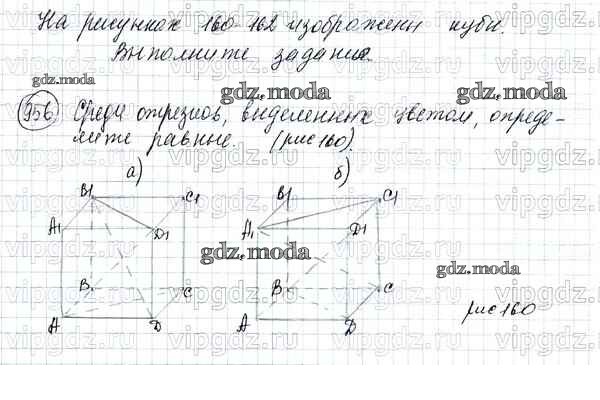 На рисунках 160-162 изображены кубы.
Выполните задания.
gdz.moda
gdz.moda
gdz.moda
956 Среди отрезков, выделенных цветом, опреде-
лите равные. (рис 160).
а) б)
B1 C1 B1 C1
A1 D1 A1 D1
gdz.moda
gdz.moda
B C B C
A D A D
рис 160
vipgdz.ru